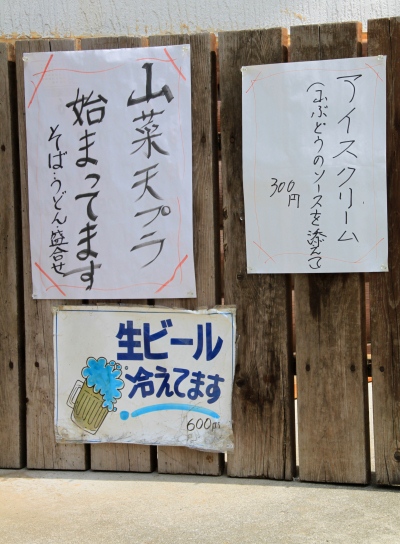 山菜天プラ
始まってます
そば・うどん・盛合せ
アイスクリーム
(山ぶどうのソースを添えて
300円
生ビール
冷えてます
600円